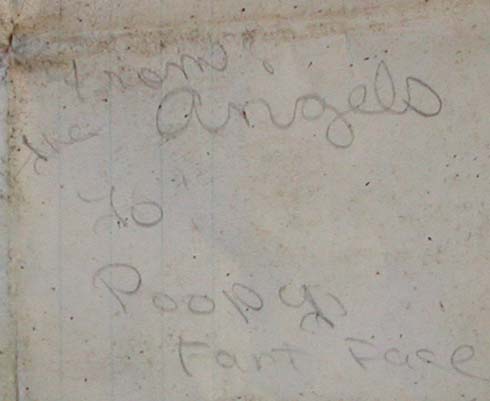 from:
the Angels
to
Poopy
Fart Face